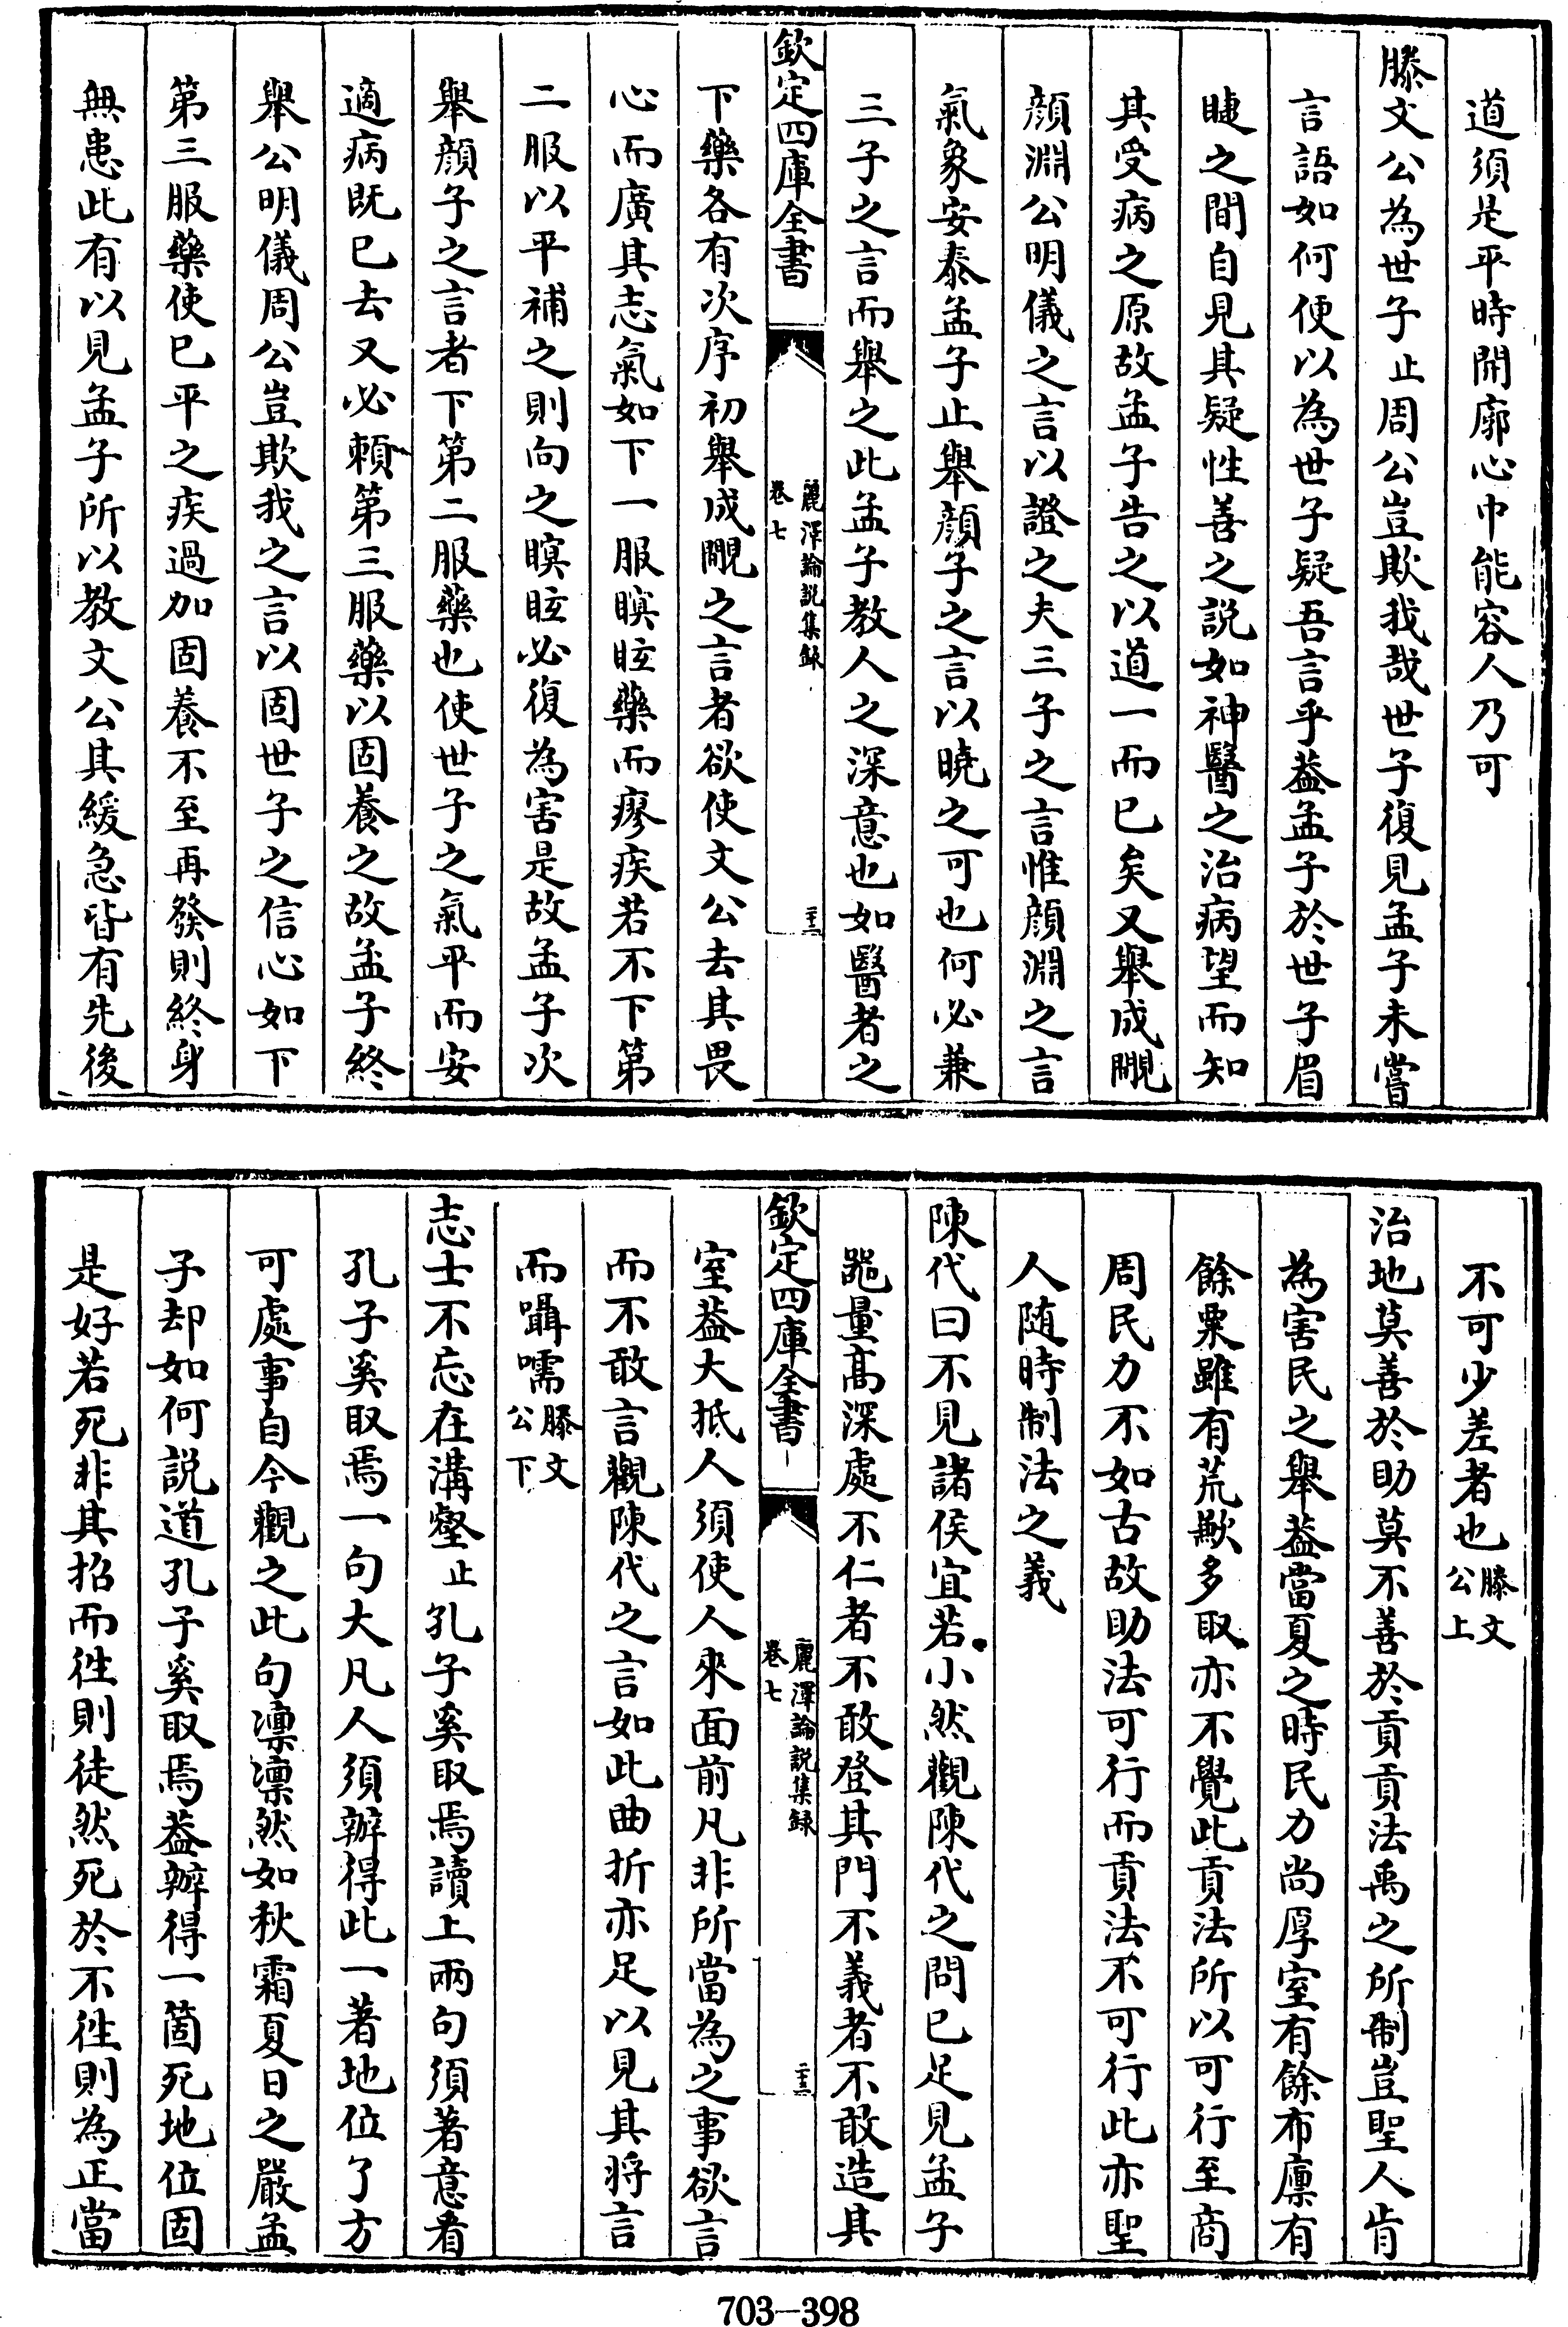 道須是平時開廓心中能容人乃可
滕文公為世子止周公豈欺我哉世子復見孟子未嘗
言語如何便以為世子疑吾言乎葢孟子於世子眉
睫之間自見其疑性善之説如神醫之治病望而知
其受病之原故孟子告之以道一而已矣又舉成覵
顔淵公明儀之言以證之夫三子之言惟顔淵之言
氣象安泰孟子止舉顔子之言以曉之可也何必兼
三子之言而舉之此孟子教人之深意也如醫者之
欽定四庫全書
麗澤論説集録
卷七
二十二
下藥各有次序初舉成覵之言者欲使文公去其畏
心而廣其志氣如下一服瞑眩藥而瘳疾若不下第
二服以平補之則向之瞑眩必復為害是故孟子次
舉顔子之言者下第二服藥也使世子之氣平而安
適病既已去又必頼第三服藥以固養之故孟子終
舉公明儀周公豈欺我之言以固世子之信心如下
第三服藥使已平之疾過加固養不至再發則終身
無患此有以見孟子所以教文公其緩急皆有先後
不可少差者也滕文公上
治地莫善於助莫不善於貢貢法禹之所制豈聖人肯
為害民之舉葢當夏之時民力尚厚室有餘布廪有
餘粟雖有荒歉多取亦不覺此貢法所以可行至商
周民力不如古故助法可行而貢法不可行此亦聖
人随時制法之義
陳代曰不見諸侯宜若小然觀陳代之問已足見孟子
噐量高深處不仁者不敢登其門不義者不敢造其
欽定四庫全書
麗澤論説集録
卷七
二十三
室葢大抵人須使人來面前凡非所當為之事欲言
而不敢言觀陳代之言如此曲折亦足以見其將言
而囁嚅滕文公下
志士不忘在溝壑止孔子奚取焉讀上兩句須著意看
孔子奚取焉一句大凡人須辦得此一著地位了方
可處事自今觀之此句凛凛然如秋霜夏日之嚴孟
子却如何説道孔子奚取焉葢辦得一箇死地位固
是好若死非其招而徃則徒然死於不徃則為正當
703-398